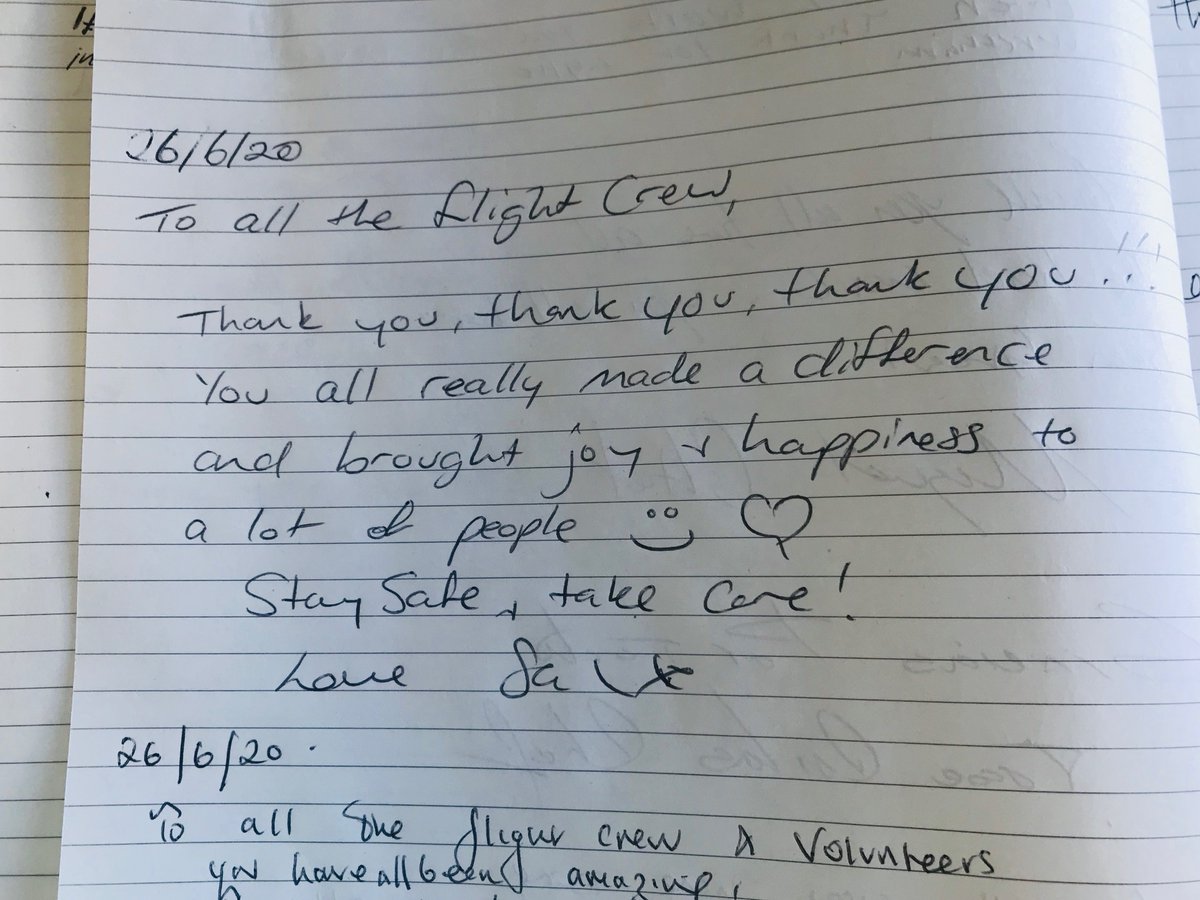 If
in
26/6/20
To all the flight Crew,
Thank you, thank you, thank you...!!!
You all really made a difference
and brought joy + happiness to
a lot of people
Stay Safe + take Care!
Love
26/6/20.
To all the flight crew & Volunteers
you have all been amazing!